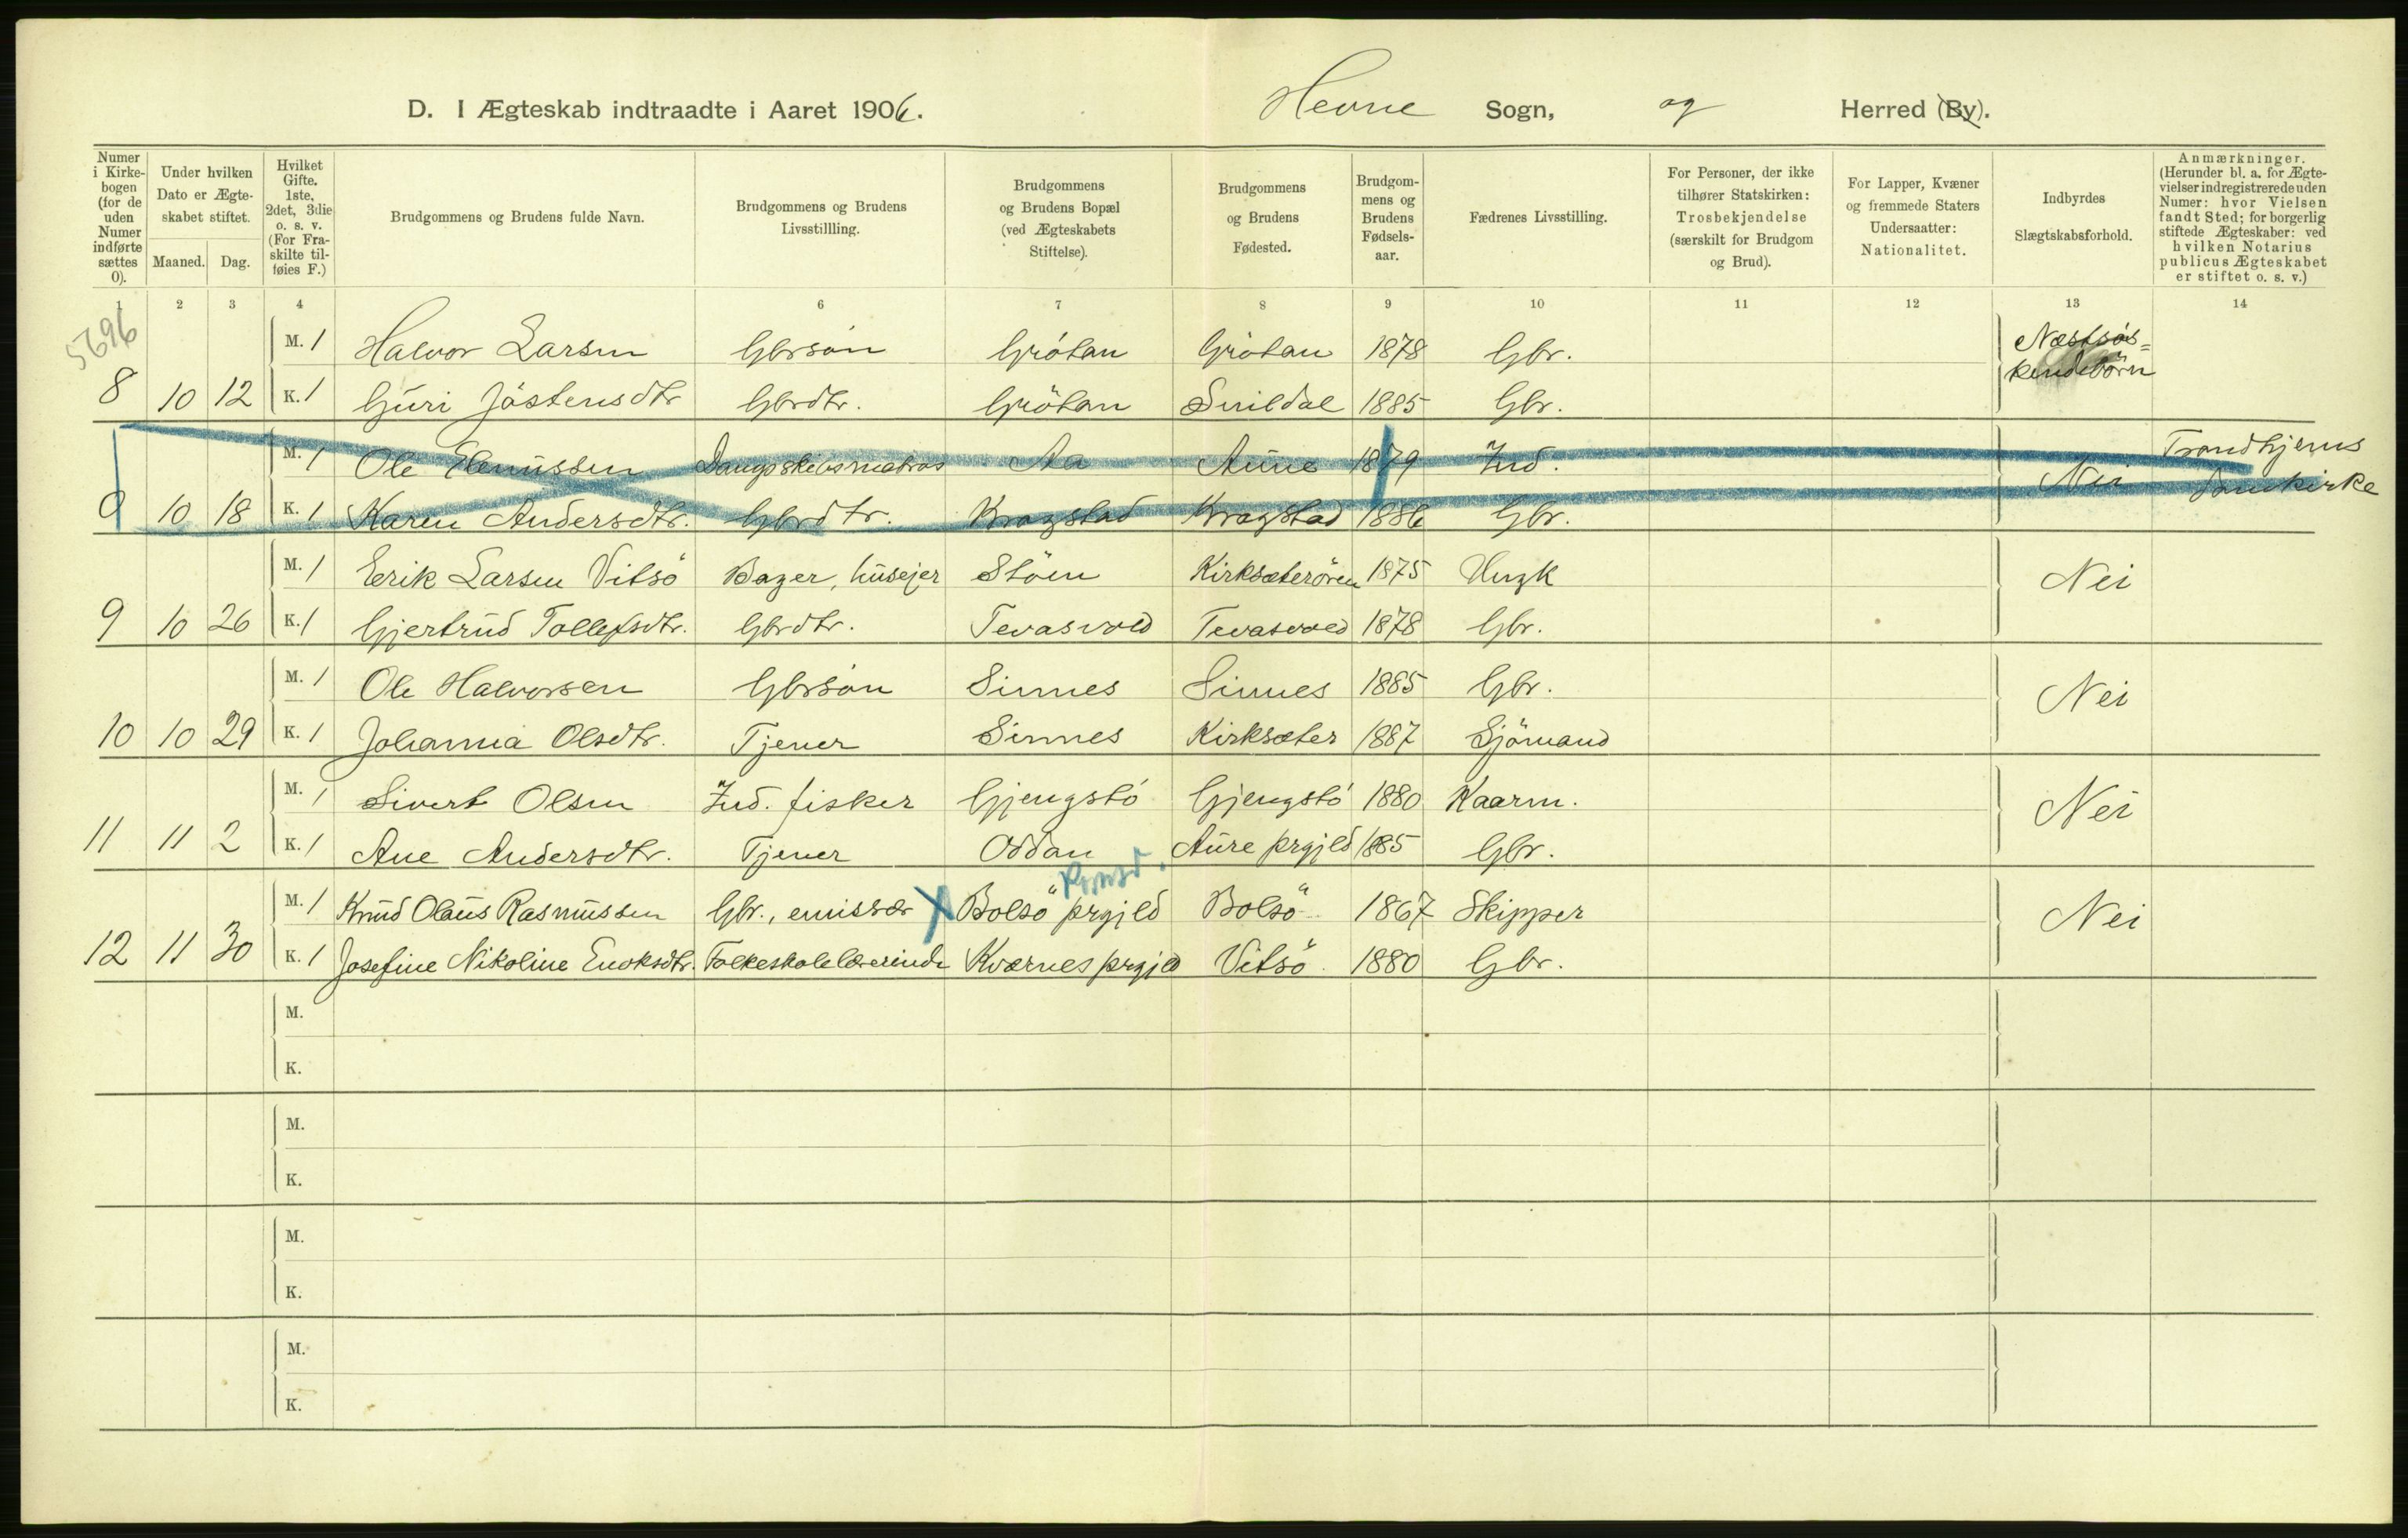 D. I Ægteskab indtraadte i Aaret 1906. Hevne Sogn, og Herred (By).
Numer i Kirke- bogen (for de uden Numer indførte sættes 0).
Under hvilken Dato er Ægte- skabet stiftet.
Maaned. Dag.
Hvilket Gifte. 1ste, 2det, 3die o. s. v. (For Fra- skilte til- føies F.)
Brudgommens og Brudens fulde Navn.
Brudgommens og Brudens Livsstillling.
Brudgommens og Brudens Bopæl (ved Ægteskabets Stiftelse).
Brudgommens og Brudens Fødested.
Brudgom- mens og Brudens Fødsels- aar.
Fædrenes Livsstilling.
For Personer, der ikke tilhører Statskirken: Trosbekjendelse (særskilt for Brudgom og Brud).
For Lapper, Kvæner og fremmede Staters Undersaatter: Nationalitet.
Indbyrdes Slægtskabsforhold.
Anmærkninger. (Herunder bl. a. for Ægte- vielser indregistrerede uden Numer: hvor Vielsen fandt Sted; for borgerlig stiftede Ægteskaber: ved hvilken Notarius publicus Ægteskabet er stiftet o. s. v.)
1 2 3 4 6 7 8 9 10 11 12 13 14
5696
M. 1 Halvor Larsen Gbrsön Grötan Grötan 1878 Gbr. Næstsøs=
kendebörn
8 10 12 K. 1 Guri Jöstensdtr Gbrdtr. Grötan Snildal 1885 Gbr.
M. 1 Ole Elenussen Dampskibsmatros Aa Aune 1879 Ind. Trondhjems
0 10 18 K. 1 Karen Andersdtr. Gbrdtr. Kragstad Kragstad 1886 Gbr. Nei Domkirke
M. 1 Erik Larsen Vitsö Bager, husejer Stöen Kirksæterören 1875 Nei
9 10 26 K. 1 Gjertrud Tollefsdtr. Gbrdtr. Tevasvold Tevasvold 1878 Gbr.
M. 1 Ole Halvorsen Gbrsön Sinnes Sinnes 1885 Gbr. Nei
10 10 29 K. 1 Johanna Olsdtr. Tjener Sinnes Kirksæter 1887 Sjömand
M. 1 Sivert Olsen Ind. fisker Gjengstö Gjengstö 1880 Kaarm. Nei
11 11 2 K. 1 Ane Andersdtr. Tjener Oddan Aure prgjeld 1885 Gbr.
Romsd.
M. 1 Knud Olaus Rasmussen Gbr., emissær X Bolsö prgjeld Bolsö 1867 Skipper Nei
12 11 30 K. 1 Josefine Nikoline Enoksdtr. Folkeskolelærerinde Kværnes prgjeld Vitsö 1880 Gbr.
M.
K.
M.
K.
M.
K.
M.
K.